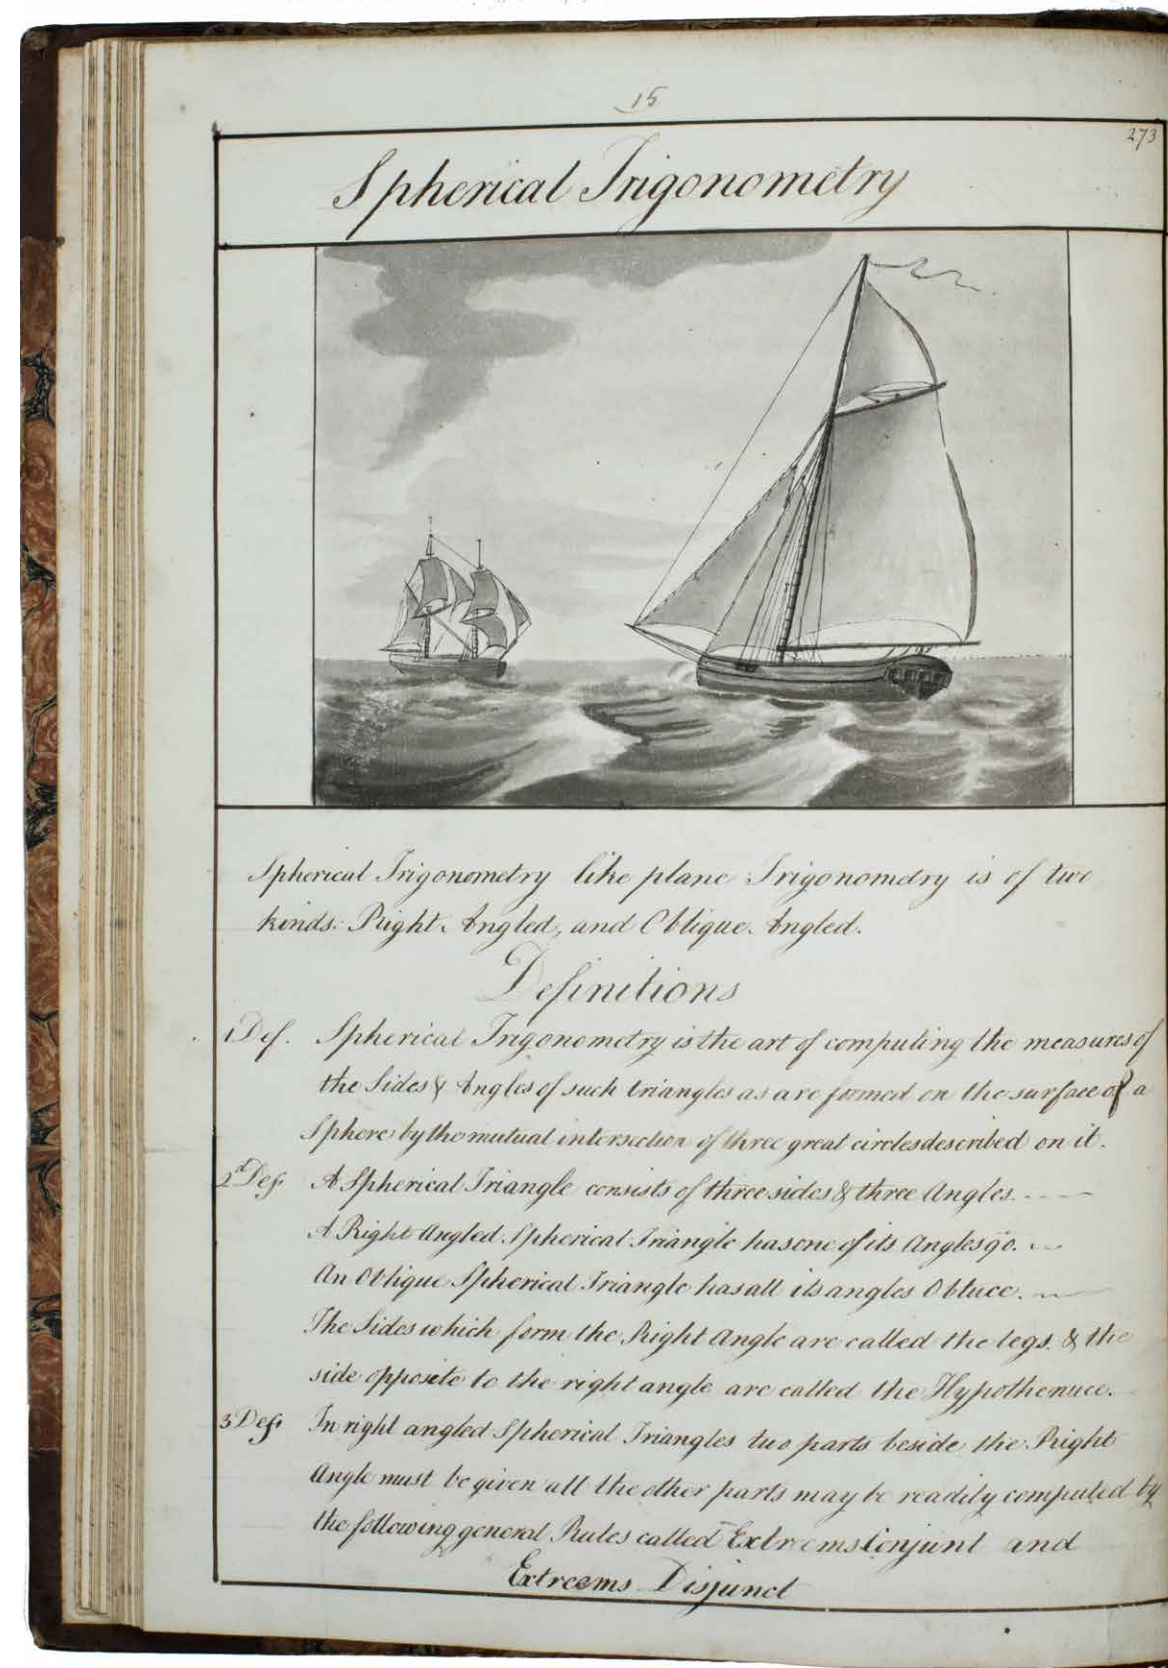 15
273
Spherical Trigonometry
Spherical Trigonometry like plane Trigonometry is of two
kinds: Right Angled, and Oblique Angled.
Definitions
1 Def. Spherical Trigonometry is the art of computing the measures of
the Sides & Angles of such triangles as are formed on the surface of a
Sphere by the mutual intersection of three great circles described on it.
2d Def. A Spherical Triangle consists of three sides & three Angles.
A Right Angled Spherical Triangle has one of its Angles 90.
An Oblique Spherical Triangle has all its angles Obtuce.
The Sides which form the Right Angle are called the legs. & the
side opposite to the right angle are called the Hypothenuce.
3 Def. In right angled Spherical Triangles two parts beside the Right
Angle must be given all the other parts may be readily computed by
the following general Rules called Extreems Conjunt and
Extreems Disjunct